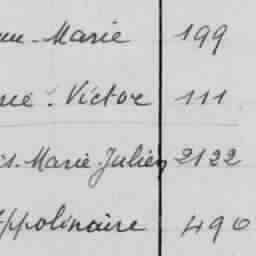 Marie 199
Victor 111
Marie Julien 2122
Appolinaire 490